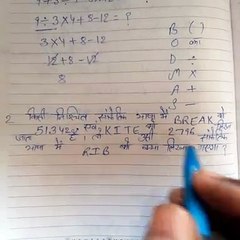 9 ÷ 3 × 4 + 8 - 12 = ?
3 × 4 + 8 - 12
12 + 8 - 12
8
B ( )
O का
D ÷
M ×
A +
S -
2 किसी निश्चित सांकेतिक भाषा में BREAK को
51342 एवं KITE को 2796 लिखा
जाता है, तो उसी सांकेतिक
भाषा में RIB को क्या लिखा जाएगा?